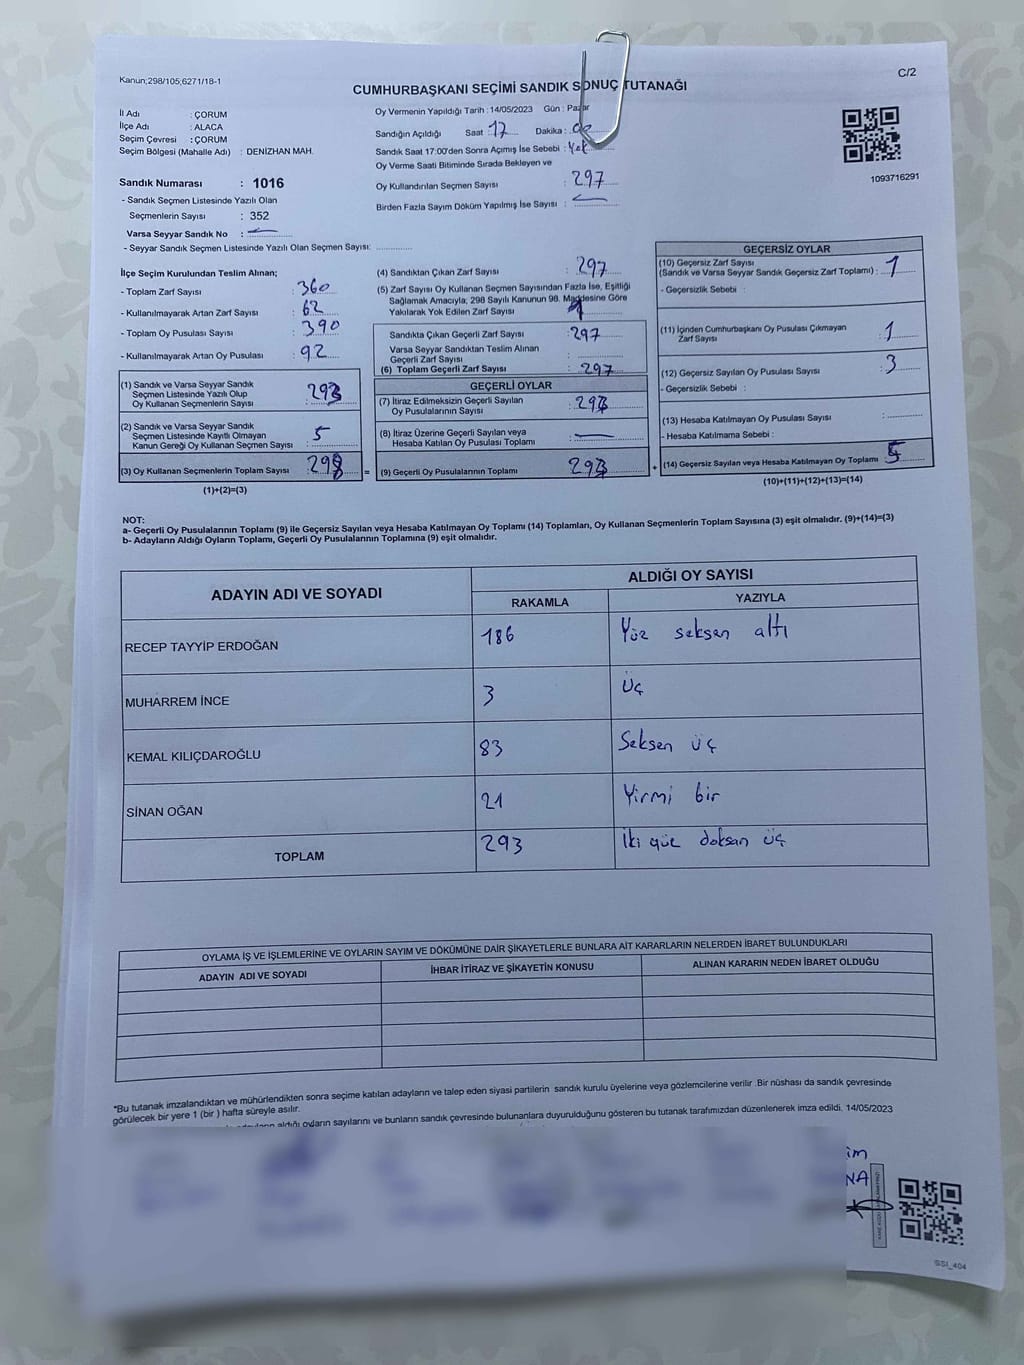 Kanun;298/105;6271/18-1
C/2
CUMHURBAŞKANI SEÇİMİ SANDIK SONUÇ TUTANAĞI
İl Adı : ÇORUM
İlçe Adı : ALACA
Seçim Çevresi : ÇORUM
Seçim Bölgesi (Mahalle Adı) : DENİZHAN MAH.
Oy Vermenin Yapıldığı Tarih : 14/05/2023 Gün : Pazar
Sandığın Açıldığı Saat : 17 Dakika :
Sandık Saat 17:00'den Sonra Açımış İse Sebebi : Yok
Oy Verme Saati Bitiminde Sırada Bekleyen ve
Oy Kullandırılan Seçmen Sayısı : 297
Birden Fazla Sayım Döküm Yapılmış İse Sayısı : —
1093716291
Sandık Numarası : 1016
- Sandık Seçmen Listesinde Yazılı Olan
Seçmenlerin Sayısı : 352
Varsa Seyyar Sandık No : —
- Seyyar Sandık Seçmen Listesinde Yazılı Olan Seçmen Sayısı:
İlçe Seçim Kurulundan Teslim Alınan;
- Toplam Zarf Sayısı : 360
- Kullanılmayarak Artan Zarf Sayısı : 62
- Toplam Oy Pusulası Sayısı : 390
- Kullanılmayarak Artan Oy Pusulası : 92
(1) Sandık ve Varsa Seyyar Sandık
Seçmen Listesinde Yazılı Olup
Oy Kullanan Seçmenlerin Sayısı :
(2) Sandık ve Varsa Seyyar Sandık
Seçmen Listesinde Kayıtlı Olmayan
Kanun Gereği Oy Kullanan Seçmen Sayısı : 5
(3) Oy Kullanan Seçmenlerin Toplam Sayısı
(1)+(2)=(3)
(4) Sandıktan Çıkan Zarf Sayısı : 297
(5) Zarf Sayısı Oy Kullanan Seçmen Sayısından Fazla İse, Eşitliği
Sağlamak Amacıyla; 298 Sayılı Kanunun 98. Maddesine Göre
Yakılarak Yok Edilen Zarf Sayısı :
Sandıkta Çıkan Geçerli Zarf Sayısı : 297
Varsa Seyyar Sandıktan Teslim Alınan
Geçerli Zarf Sayısı :
(6) Toplam Geçerli Zarf Sayısı : 297
GEÇERLİ OYLAR
(7) İtiraz Edilmeksizin Geçerli Sayılan
Oy Pusulalarının Sayısı : 293
(8) İtiraz Üzerine Geçerli Sayılan veya
Hesaba Katılan Oy Pusulası Toplamı : —
= (9) Geçerli Oy Pusulalarının Toplamı : 293
GEÇERSİZ OYLAR
(10) Geçersiz Zarf Sayısı
(Sandık ve Varsa Seyyar Sandık Geçersiz Zarf Toplamı) : 1
- Geçersizlik Sebebi :
(11) İçinden Cumhurbaşkanı Oy Pusulası Çıkmayan
Zarf Sayısı : 1
(12) Geçersiz Sayılan Oy Pusulası Sayısı : 3
- Geçersizlik Sebebi :
(13) Hesaba Katılmayan Oy Pusulası Sayısı :
- Hesaba Katılmama Sebebi :
+ (14) Geçersiz Sayılan veya Hesaba Katılmayan Oy Toplamı : 5
(10)+(11)+(12)+(13)=(14)
NOT:
a- Geçerli Oy Pusulalarının Toplamı (9) ile Geçersiz Sayılan veya Hesaba Katılmayan Oy Toplamı (14) Toplamları, Oy Kullanan Seçmenlerin Toplam Sayısına (3) eşit olmalıdır. (9)+(14)=(3)
b- Adayların Aldığı Oyların Toplamı, Geçerli Oy Pusulalarının Toplamına (9) eşit olmalıdır.
ADAYIN ADI VE SOYADI
ALDIĞI OY SAYISI
RAKAMLA YAZIYLA
RECEP TAYYİP ERDOĞAN 186 Yüz seksen altı
MUHARREM İNCE 3 Üç
KEMAL KILIÇDAROĞLU 83 Seksen üç
SİNAN OĞAN 21 Yirmi bir
TOPLAM 293 İki yüz doksan üç
OYLAMA İŞ VE İŞLEMLERİNE VE OYLARIN SAYIM VE DÖKÜMÜNE DAİR ŞİKAYETLERLE BUNLARA AİT KARARLARIN NELERDEN İBARET BULUNDUKLARI
ADAYIN ADI VE SOYADI İHBAR İTİRAZ VE ŞİKAYETİN KONUSU ALINAN KARARIN NEDEN İBARET OLDUĞU
*Bu tutanak imzalandıktan ve mühürlendikten sonra seçime katılan adayların ve talep eden siyasi partilerin sandık kurulu üyelerine veya gözlemcilerine verilir .Bir nüshası da sandık çevresinde
görülecek bir yere 1 (bir ) hafta süreyle asılır.
aldığı oyların sayılarını ve bunların sandık çevresinde bulunanlara duyurulduğunu gösteren bu tutanak tarafımızdan düzenlenerek imza edildi. 14/05/2023
im
NA
SSI_404